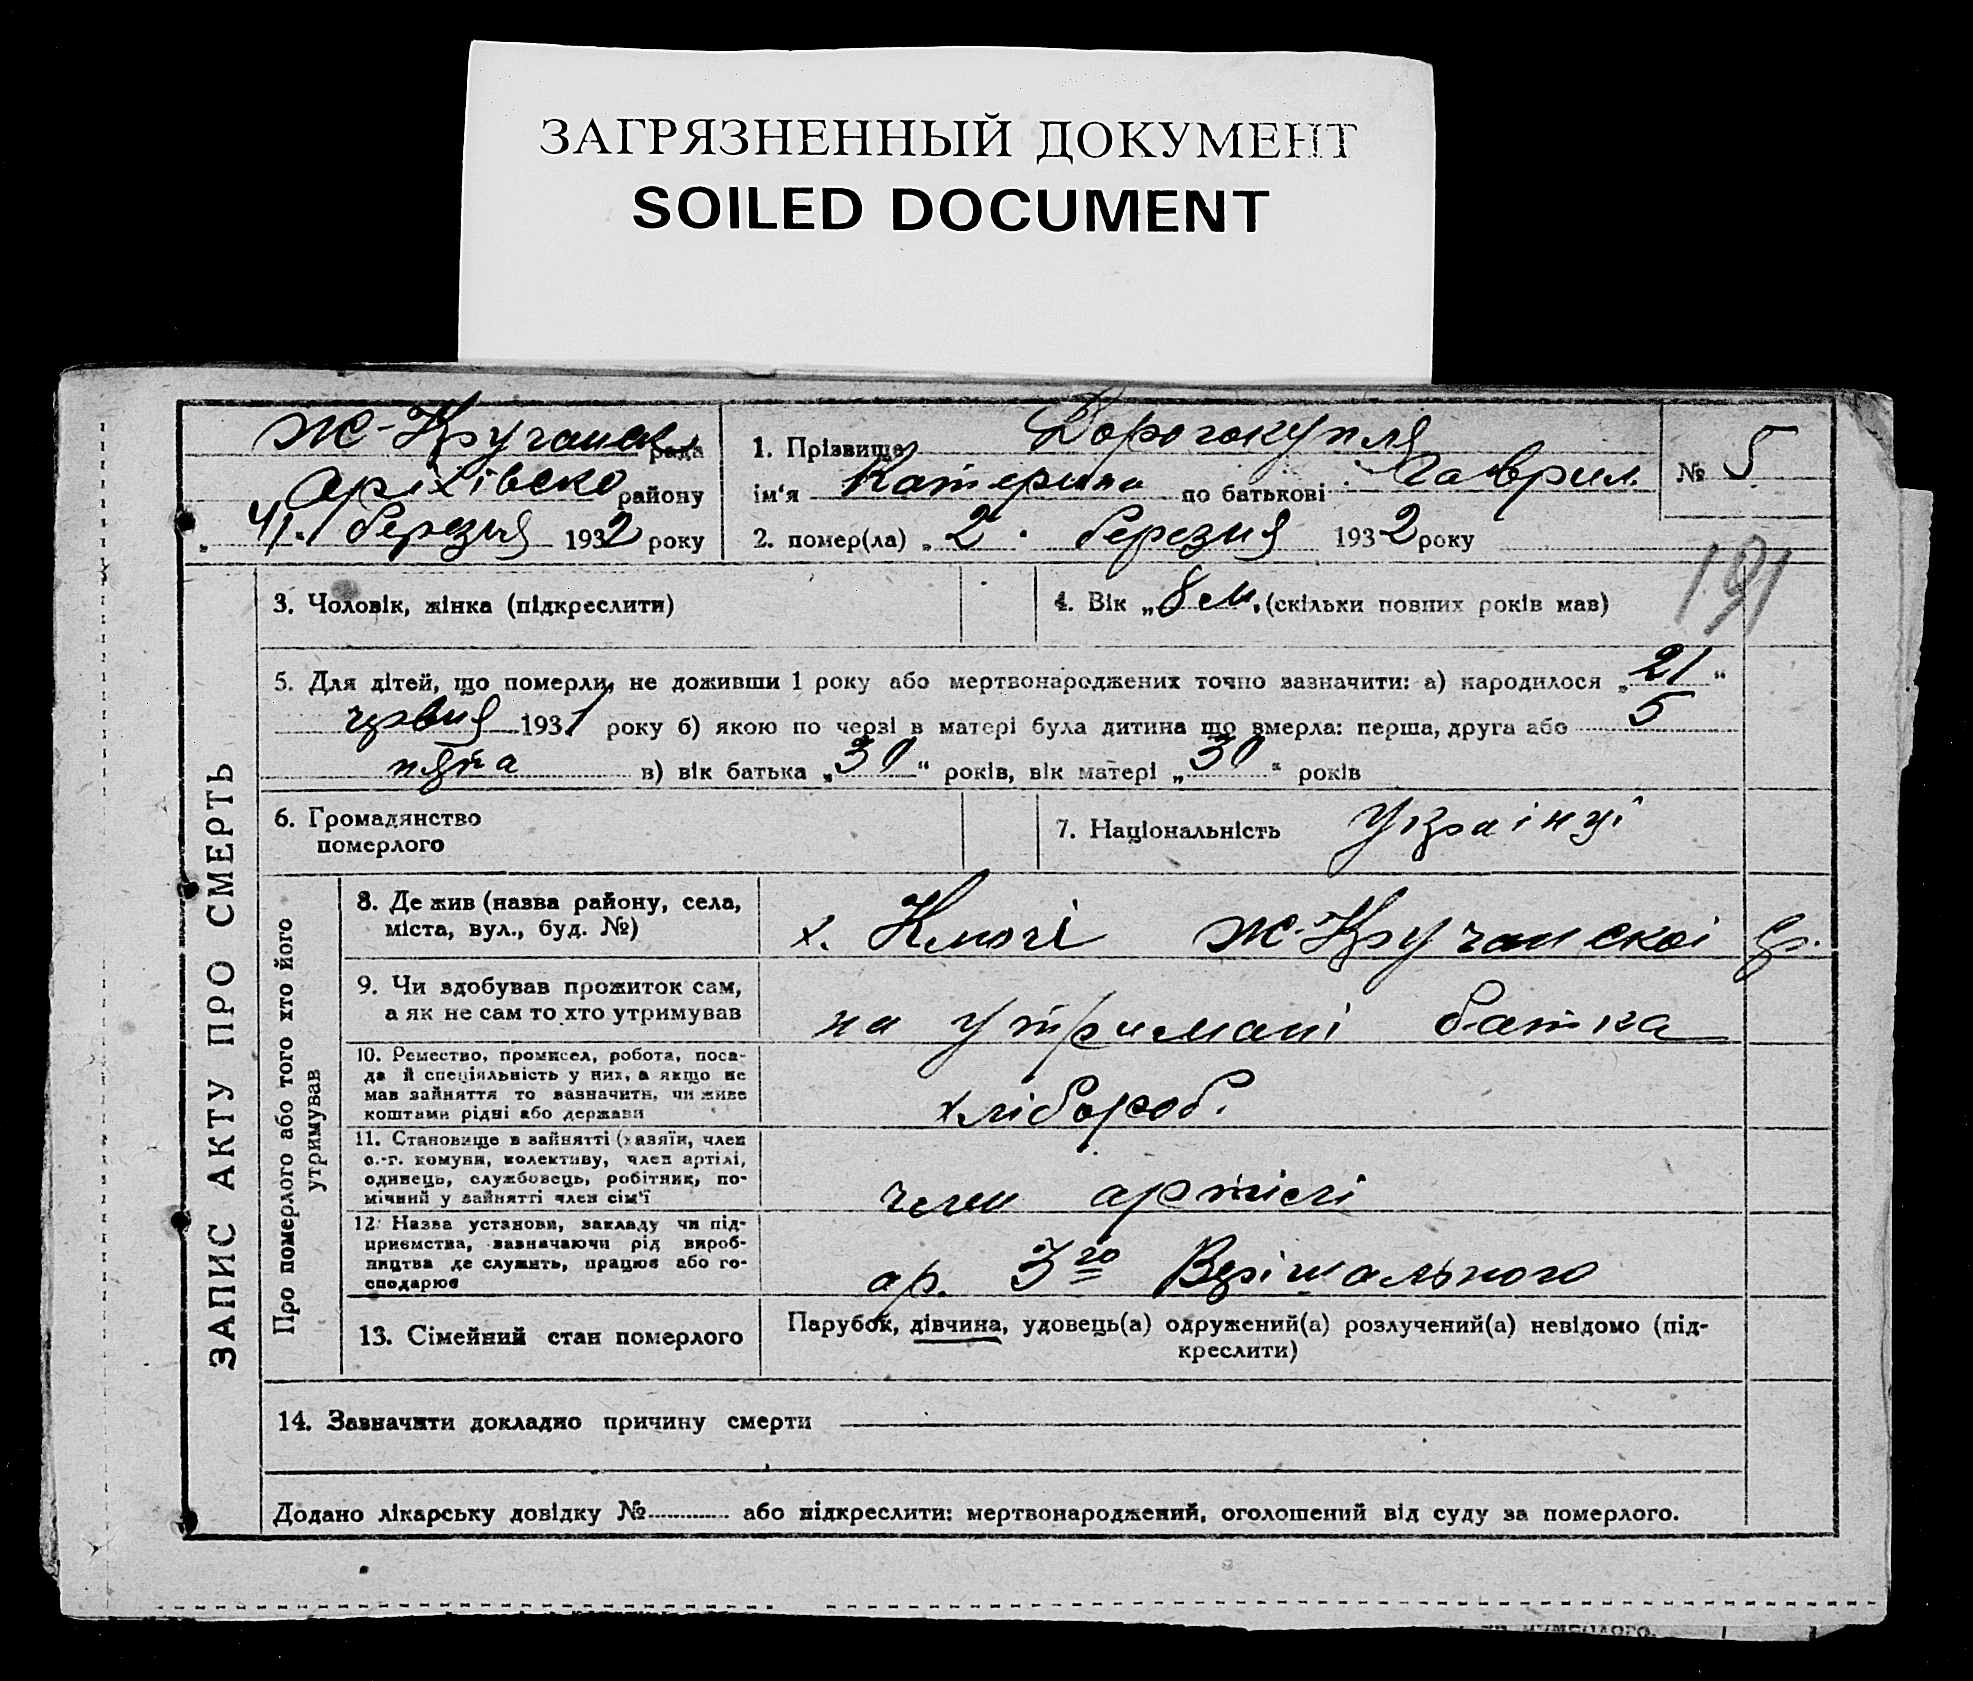 ЗАГРЯЗНЕННЫЙ ДОКУМЕНТ
SOILED DOCUMENT
Ж-Кручанська рада
Оріхівско району
„ 4/. березня 1932 року
1. Прізвище Дорогокупля
ім'я Катерина по батькові Гаврил.
2. помер(ла) „ 2 . березня 1932 року
№ 5
191
3. Чоловік, жінка (підкреслити)
4. Вік „ 8 м. (скільки повних років мав)
5. Для дітей, що померли, не доживши 1 року або мертвонароджених точно зазначити: а) народилося „ 21 “
червня 1931 року б) якою по черзі в матері була дитина що вмерла: перша, друга або 5
пята в) вік батька „ 30 “ років, вік матері „ 30 “ років
6. Громадянство
померлого
7. Національність Українці
ЗАПИС АКТУ ПРО СМЕРТЬ
Про померлого або того хто його
утримував
8. Де жив (назва району, села,
міста, вул., буд. №)
х. Ключі Ж-Кручанскоі
9. Чи здобував прожиток сам,
а як не сам то хто утримував
на утримані батка
10. Ремество, промисел, робота, поса-
да й спеціяльність у них, а якщо не
мав зайняття то зазначити, чи живе
коштами рідні або держави
хлібороб.
11. Становище в зайнятті (хазяїн, член
с.-г. комуни, колективу, член артілі,
одинець, службовець, робітник, по-
мічний у зайнятті член сім'ї
член артілі
12. Назва установи, закладу чи під-
приємства, зазначаючи рід вироб-
ництва де служить, працює або го-
сподарює
ар. 3го Вєрішального
13. Сімейний стан померлого
Парубок, дівчина, удовець(а) одружений(а) розлучений(а) невідомо (під-
креслити)
14. Зазначити докладно причину смерти
Додано лікарську довідку № або підкреслити: мертвонароджений, оголошений від суду за померлого.